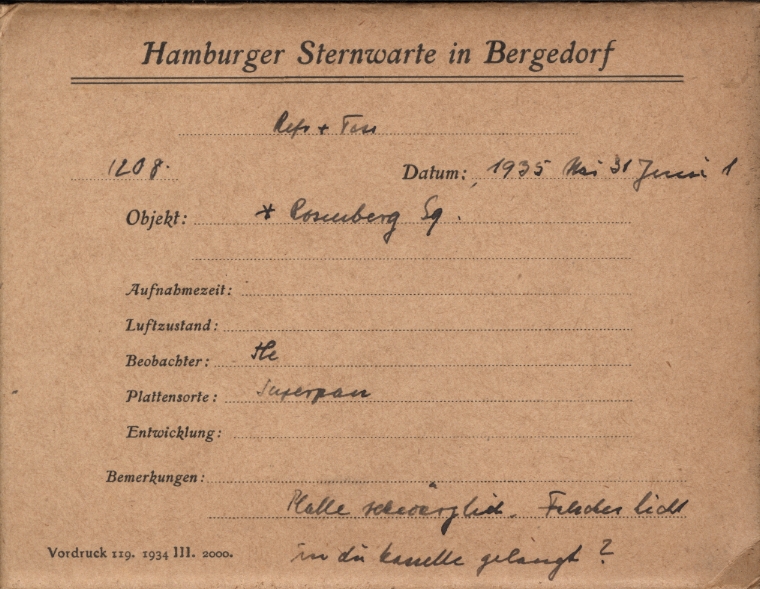 Hamburger Sternwarte in Bergedorf
Refr + Tess
1208.
Datum: 1935 Mai 31 Juni 1
Objekt: * Rosenberg Sq.
Aufnahmezeit:
Luftzustand:
Beobachter: He
Plattensorte: Superpan
Entwicklung:
Bemerkungen:
Platte schwärzlich. Falsches Licht
in die Kassette gelangt?
Vordruck 119. 1934 III. 2000.